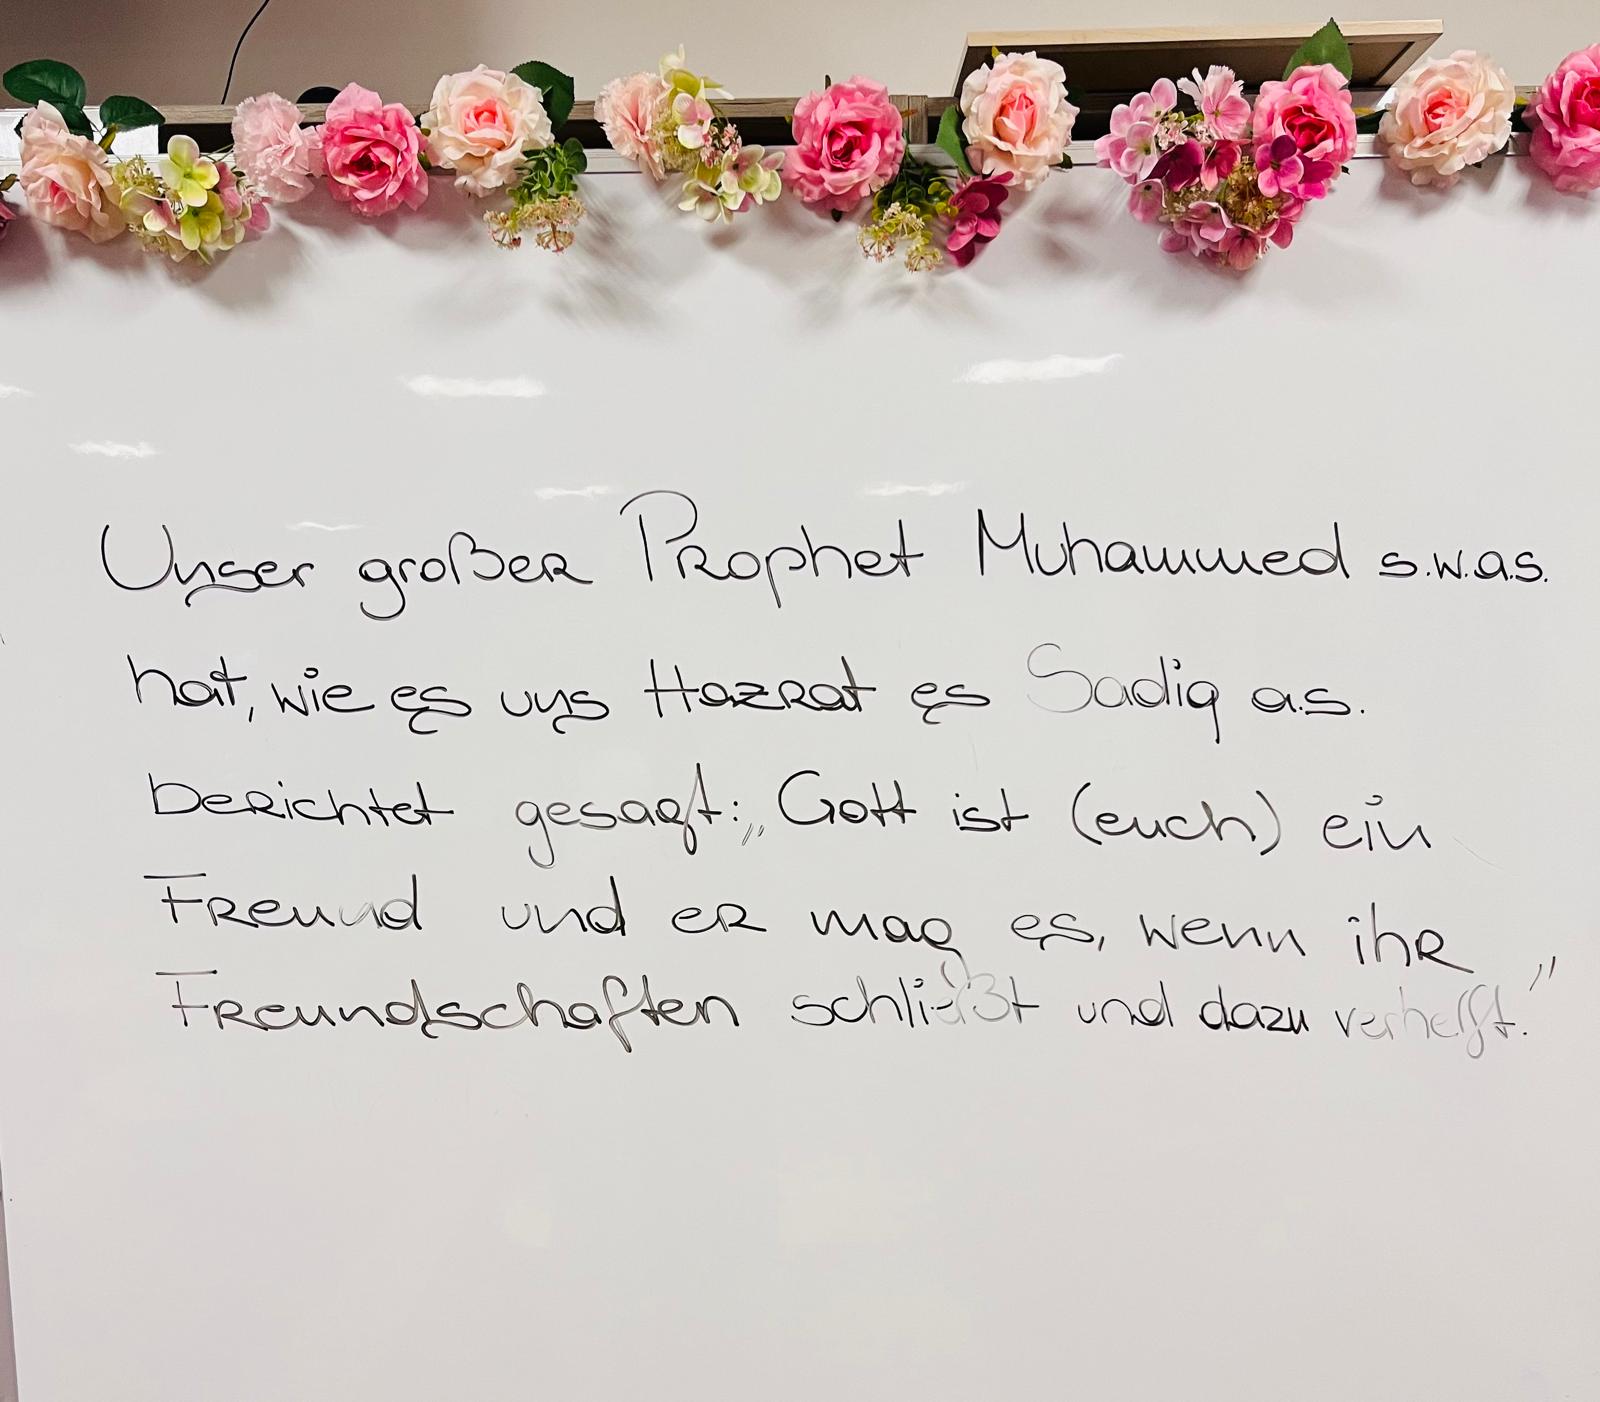 Unser großer Prophet Muhammed s.w.a.s.
hat, wie es uns Hazrat es Sadiq a.s.
berichtet gesagt: „Gott ist (euch) ein
Freund und er mag es, wenn ihr
Freundschaften schließt und dazu verhelft."